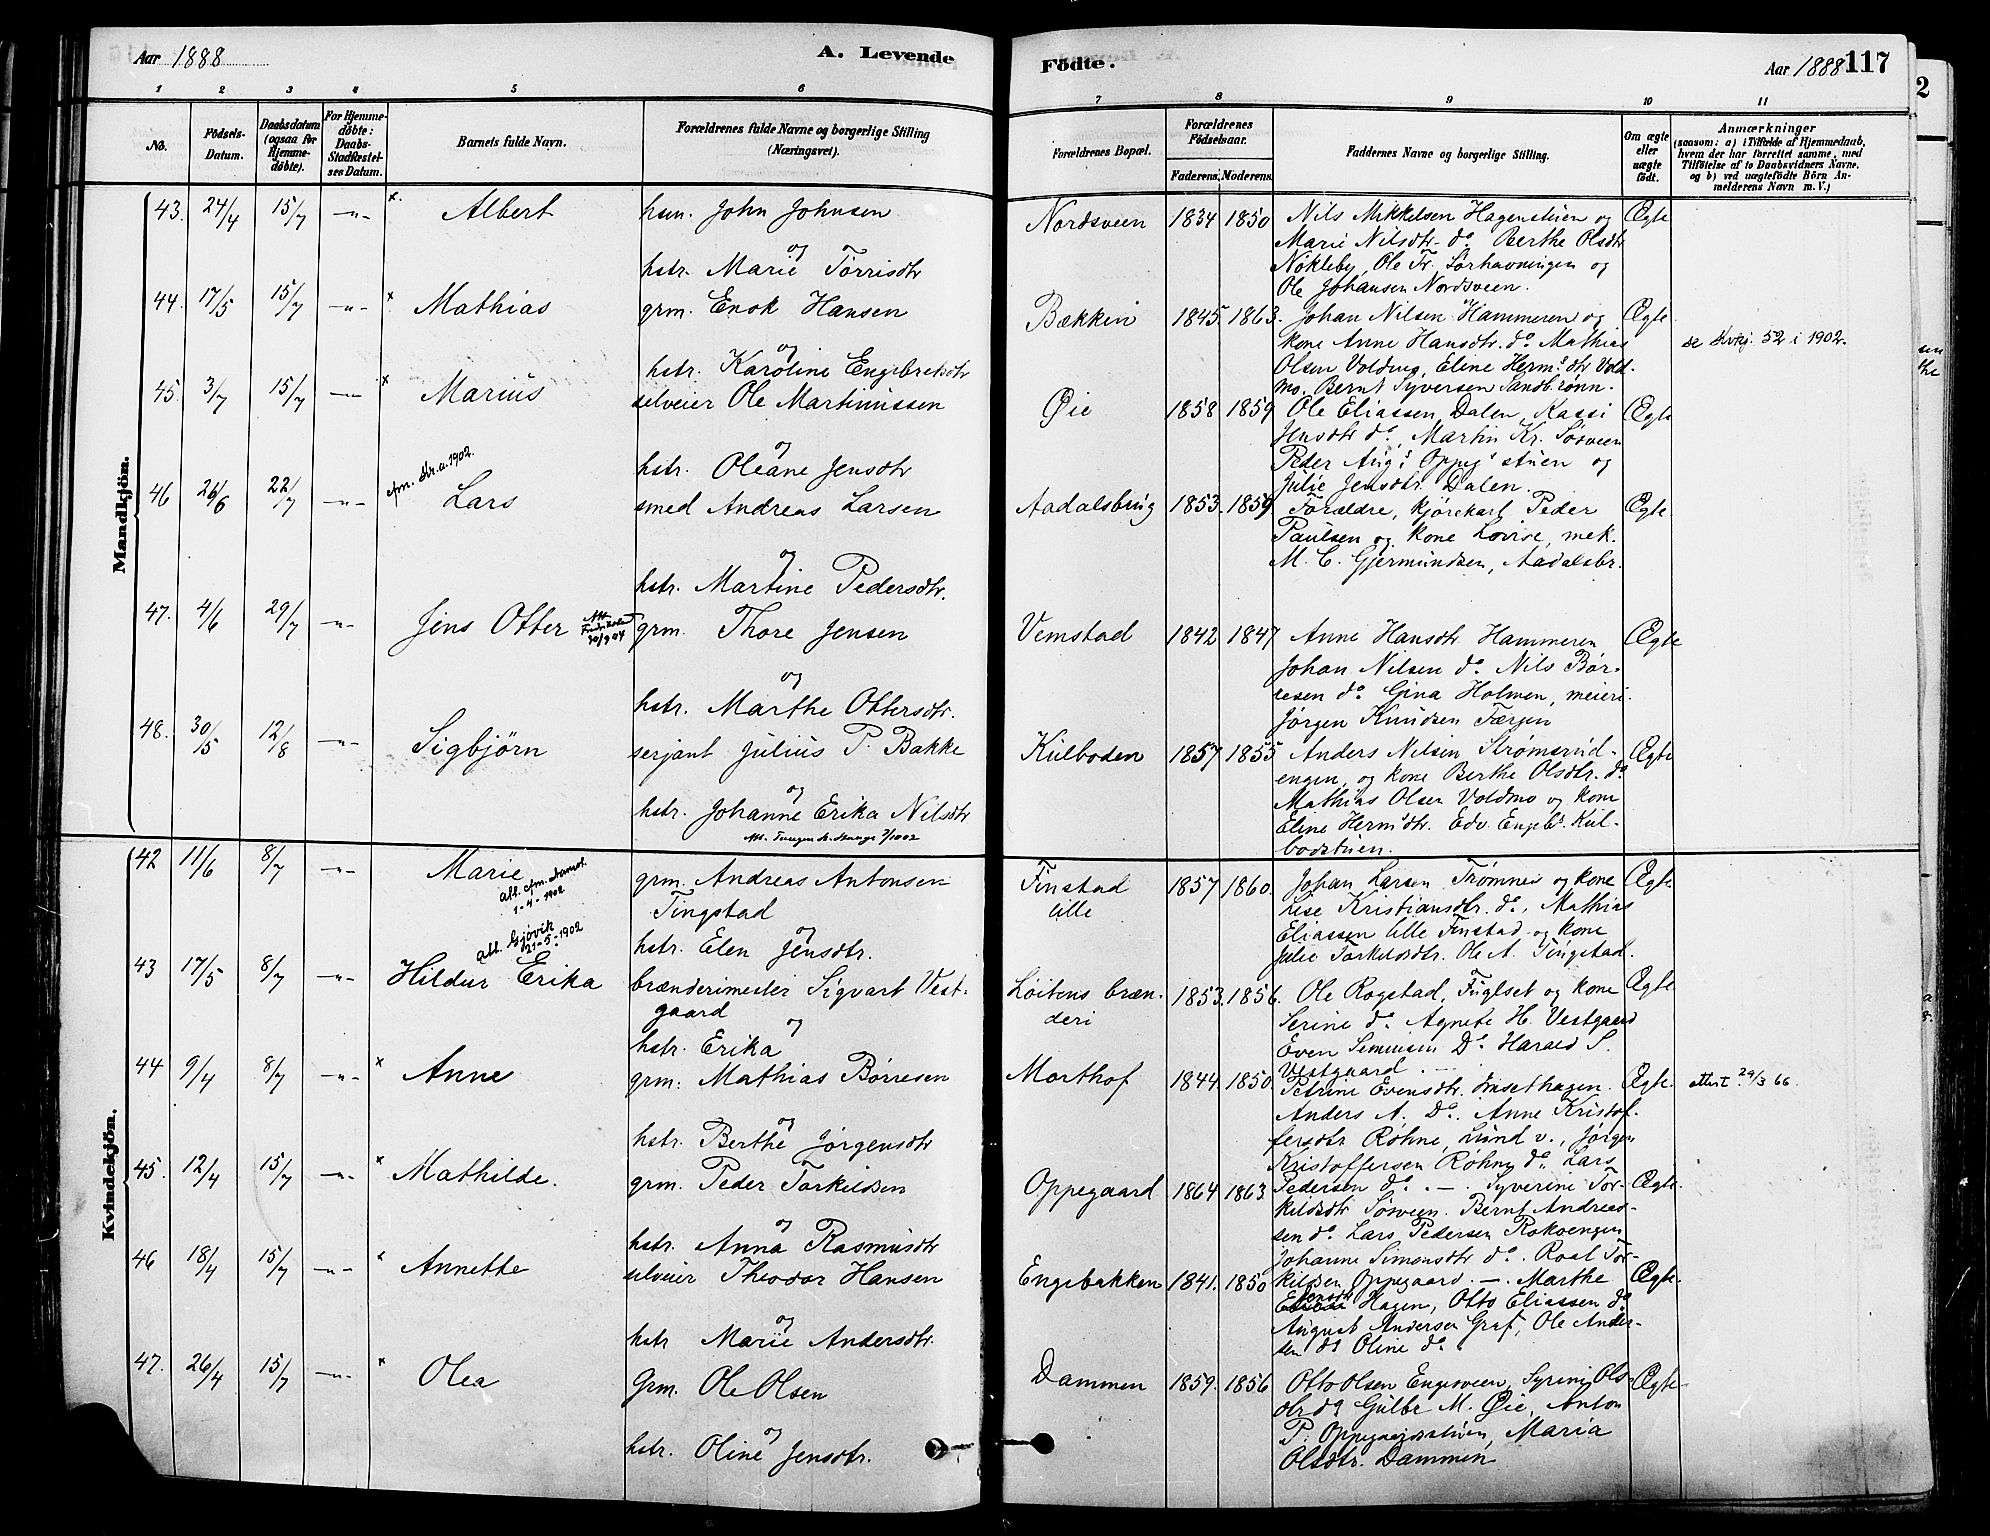 Aar 1888
A. Levende
Födte.
Aar 1888 117
1 2 3 4 5 6 7 8 9 10 11
No.
Födsels-
Datum.
Daabsdatum
(ogsaa for
Hjemme-
døbte).
For Hjemme-
døbte:
Daabs-
Stadfæstel-
ses Datum.
Barnets fulde Navn.
Forældrenes fulde Navne og borgerlige Stilling
(Næringsvei).
Forældrenes Bopæl.
Forældrenes
Födselsaar.
Faderens. Moderens.
Faddernes Navne og borgerlige Stilling.
Om ægte
eller
uægte
født.
Anmærkninger
(saasom: a) i Tilfælde af Hjemmedaab,
hvem der har forrettet samme, med
Tilföielse af to Daabsvidners Navne,
og b) ved uægtefödte Börn An-
melderens Navn m. V.)
Mandkjön.
43. 24/4 15/7 -"- x. Albert hsm. John Johnsen
og
hstr. Marie Torrisdtr
Nordsveen 1834 1850 Nils Mikkelsen Hagenstuen og Ægte
Marie Nilsdtr. do. Berthe Olsdtr
Nøkleby, Ole Fr. Sørhavningen og
Ole Johansen Nordsveen.
44. 17/5 15/7 -"- x Mathias grm. Enok Hansen
og
hstr. Karoline Engebretsdtr
Bækken 1845. 1863. Johan Nilsen Hammeren og Ægte
kone Anne Hansdtr. do. Mathias
Olsen Voldmo, Eline Herms.dtr Vold-
mo. Bernt Syversen Sandbrønn.
se 52 i 1902.
45. 3/7 15/7 -"- x Marius selveier Ole Martinussen
og
hstr. Oleane Jensdtr
Øie 1858 1859 Ole Eliassen Dalen, Kassi Ægte
Jensdtr do., Martin Kr. Sørveen
Peder Aug. Oppeg. stuen og
Julie Jensdtr. Dalen.
46 26/6 22/7 -"- Lars smed Andreas Larsen
og
hstr. Martine Pedersdtr.
Aadalsbrug 1853. 1859 Forældre, kjørekarl Peder Ægte
Paulsen og kone Lovise, mek.
M. C. Gjermundsen, Aadalsbr.
47. 4/6 29/7 -"- Jens Otter 30/9 04 grm. Thore Jensen
og
hstr. Marthe Ottersdtr.
Vemstad 1842 1847 Anne Hansdtr. Hammeren Ægte
Johan Nilsen do. Nils Bør-
resen do. Gina Holmen, meieri
Jørgen Knudsen Færgen
48. 30/5 12/8 -"- Sigbjörn serjant Julius P. Bakke
og
hstr. Johanne Erika Nilsdtr
Kulboden 1857 1855 Anders Nilsen Strømsrud- Ægte
engen, og kone Berthe Olsdtr. do.
Mathias Olsen Voldmo og kone
Eline Hermsdtr. Edv. Engebr. Kul-
bodstuen.
Kvindekjön.
42 11/6 8/7 -"- Marie grm. Andreas Antonsen
1-4-1902
Tingstad
og
hstr. Elen Jensdtr.
Finstad 1857 1860. Johan Larsen Trømnes og kone Ægte
lille
Lise Kristiansdtr. do., Mathias
Eliassen lille Finstad og kone
Julie Torkildsdtr. Ole A. Tingstad.
att. Gjøvik
21-5-1902
43 17/5 8/7 -"- Hildur Erika brænderimester Sigvart Vest-
gaard
og
hstr. Erika
Løitens bræn- 1853. 1856. Ole Rogstad, Fuglset og kone Ægte
deri
Serine do. Agnete H. Vestgaard
Even Simensen Do. Harald S.
Vestgaard
44 9/4 8/7 -"- x Anne grm. Mathias Børresen
og
hstr. Berthe Jørgensdtr
Morthof 1844. 1850. Petrine Evensdtr. Ægte. attest 29/3 66.
Anders A. Do. Anne Kristof-
fersdtr Røhne, Lund v., Jørgen
Kristoffersen Røhne do. Lars
Pedersen do.
45. 12/4 15/7 -"- x Mathilde. grm. Peder Torkildsen
og
hstr. Anna Rasmusdtr
Oppegaard 1864 1863 Syverine Tor- Ægte.
kildsdtr Sørveen. Bernt Andreas-
sen do. Lars Pedersen Rokoengen
Johanne Simonsdtr do. Roal Tor-
kildsen Oppegaard.
46 18/4 15/7 -"- x Annette selveier Theodor Hansen
og
hstr Marie Andersdtr.
Engebakken 1841. 1850 Marthe Ægte.
Jensdtr Hagen, Otto Eliassen do
August Andersen Graf, Ole Ander-
sen do Oline do.
47. 26/4 15/7 -"- x Olea Grm. Ole Olsen
og
hstr. Oline Jensdtr.
Dammen 1859. 1856 Otto Olsen Engesveen, Syrine Ols- Ægte
dtr do Gulbr M. Øie, Anton
P. Oppegaardstuen, Maria
Olsdtr. Dammen